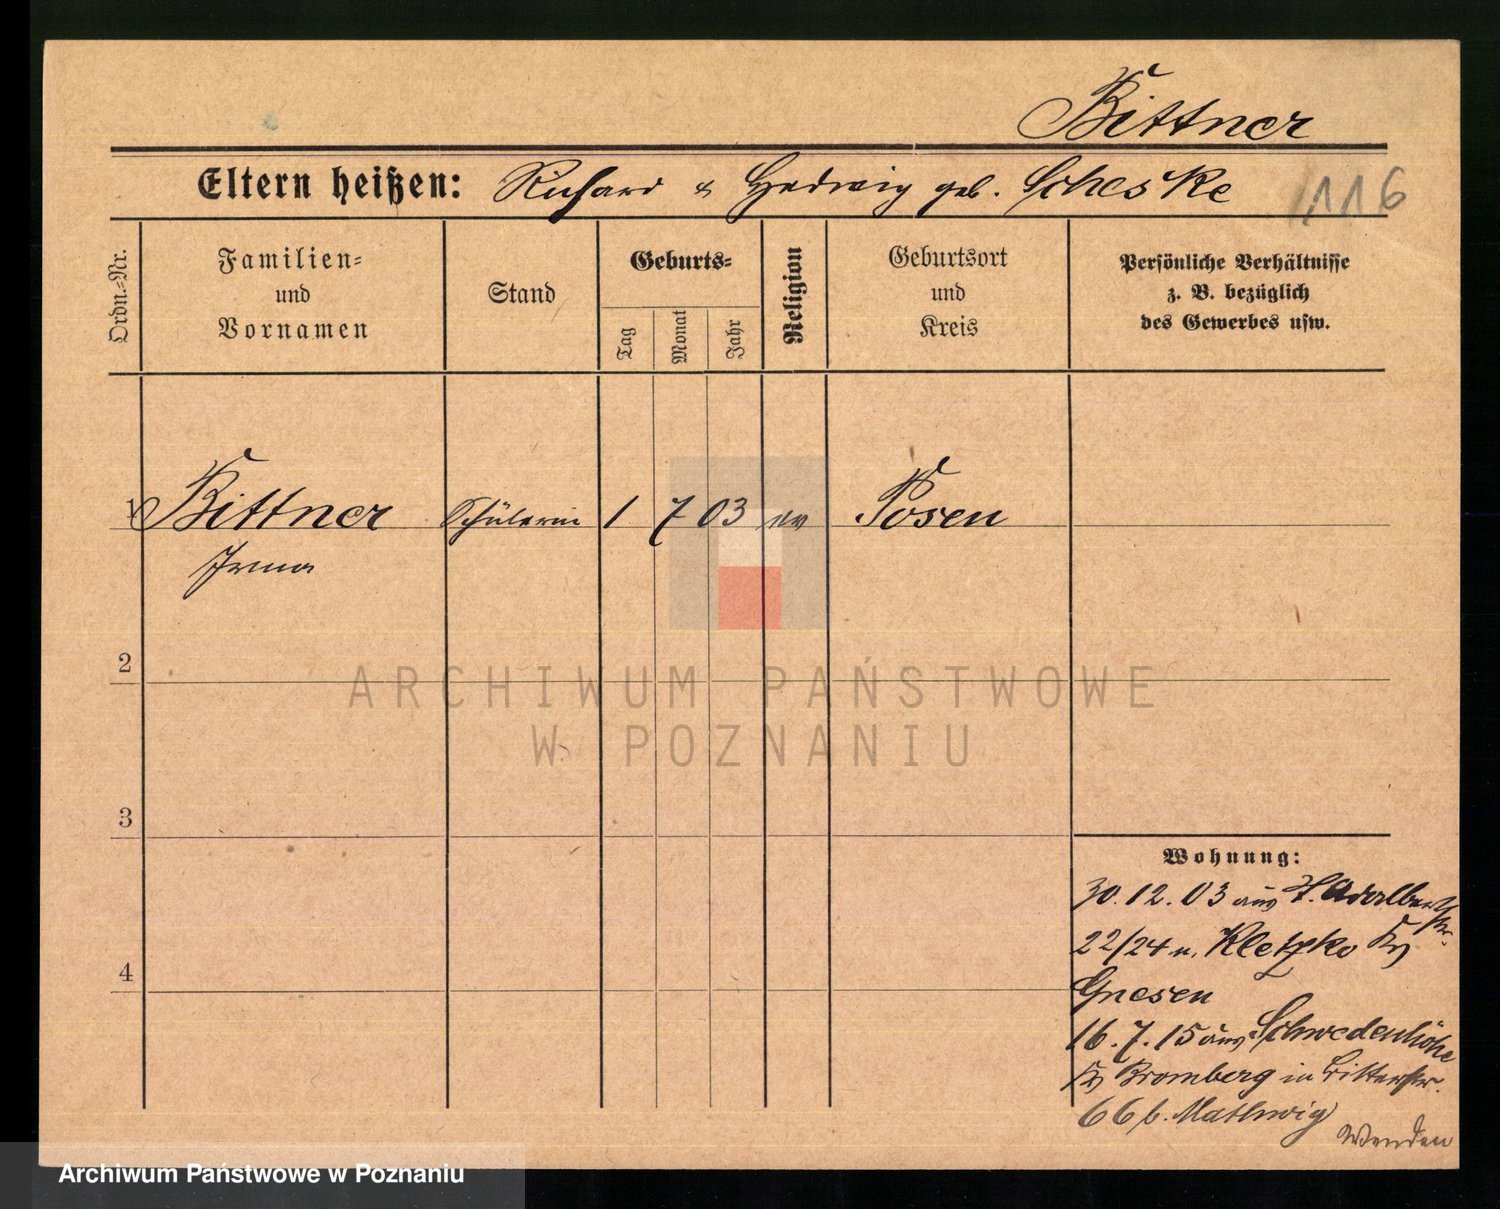 Bittner
Eltern heißen: Richard & Hedwig geb. Scheske
1116
Ordn.-Nr.
Familien-
und
Vornamen
Stand
Geburts-
Tag
Monat
Jahr
Religion
Geburtsort
und
Kreis
Persönliche Verhältnisse
z. B. bezüglich
des Gewerbes usw.
1 Bittner Schülerin 1 7 03 ev Posen
Irma
2
ARCHIWUM PAŃSTWOWE
W POZNANIU
3
4
Wohnung:
30.12.03 aus St. Adalbertstr.
22/24 n. Kletzko Kr
Gnesen
16.7.15 aus Schwedenhöhe
Kr Bromberg in Ritterstr.
66 b. Mathwig
Wenden
Archiwum Państwowe w Poznaniu